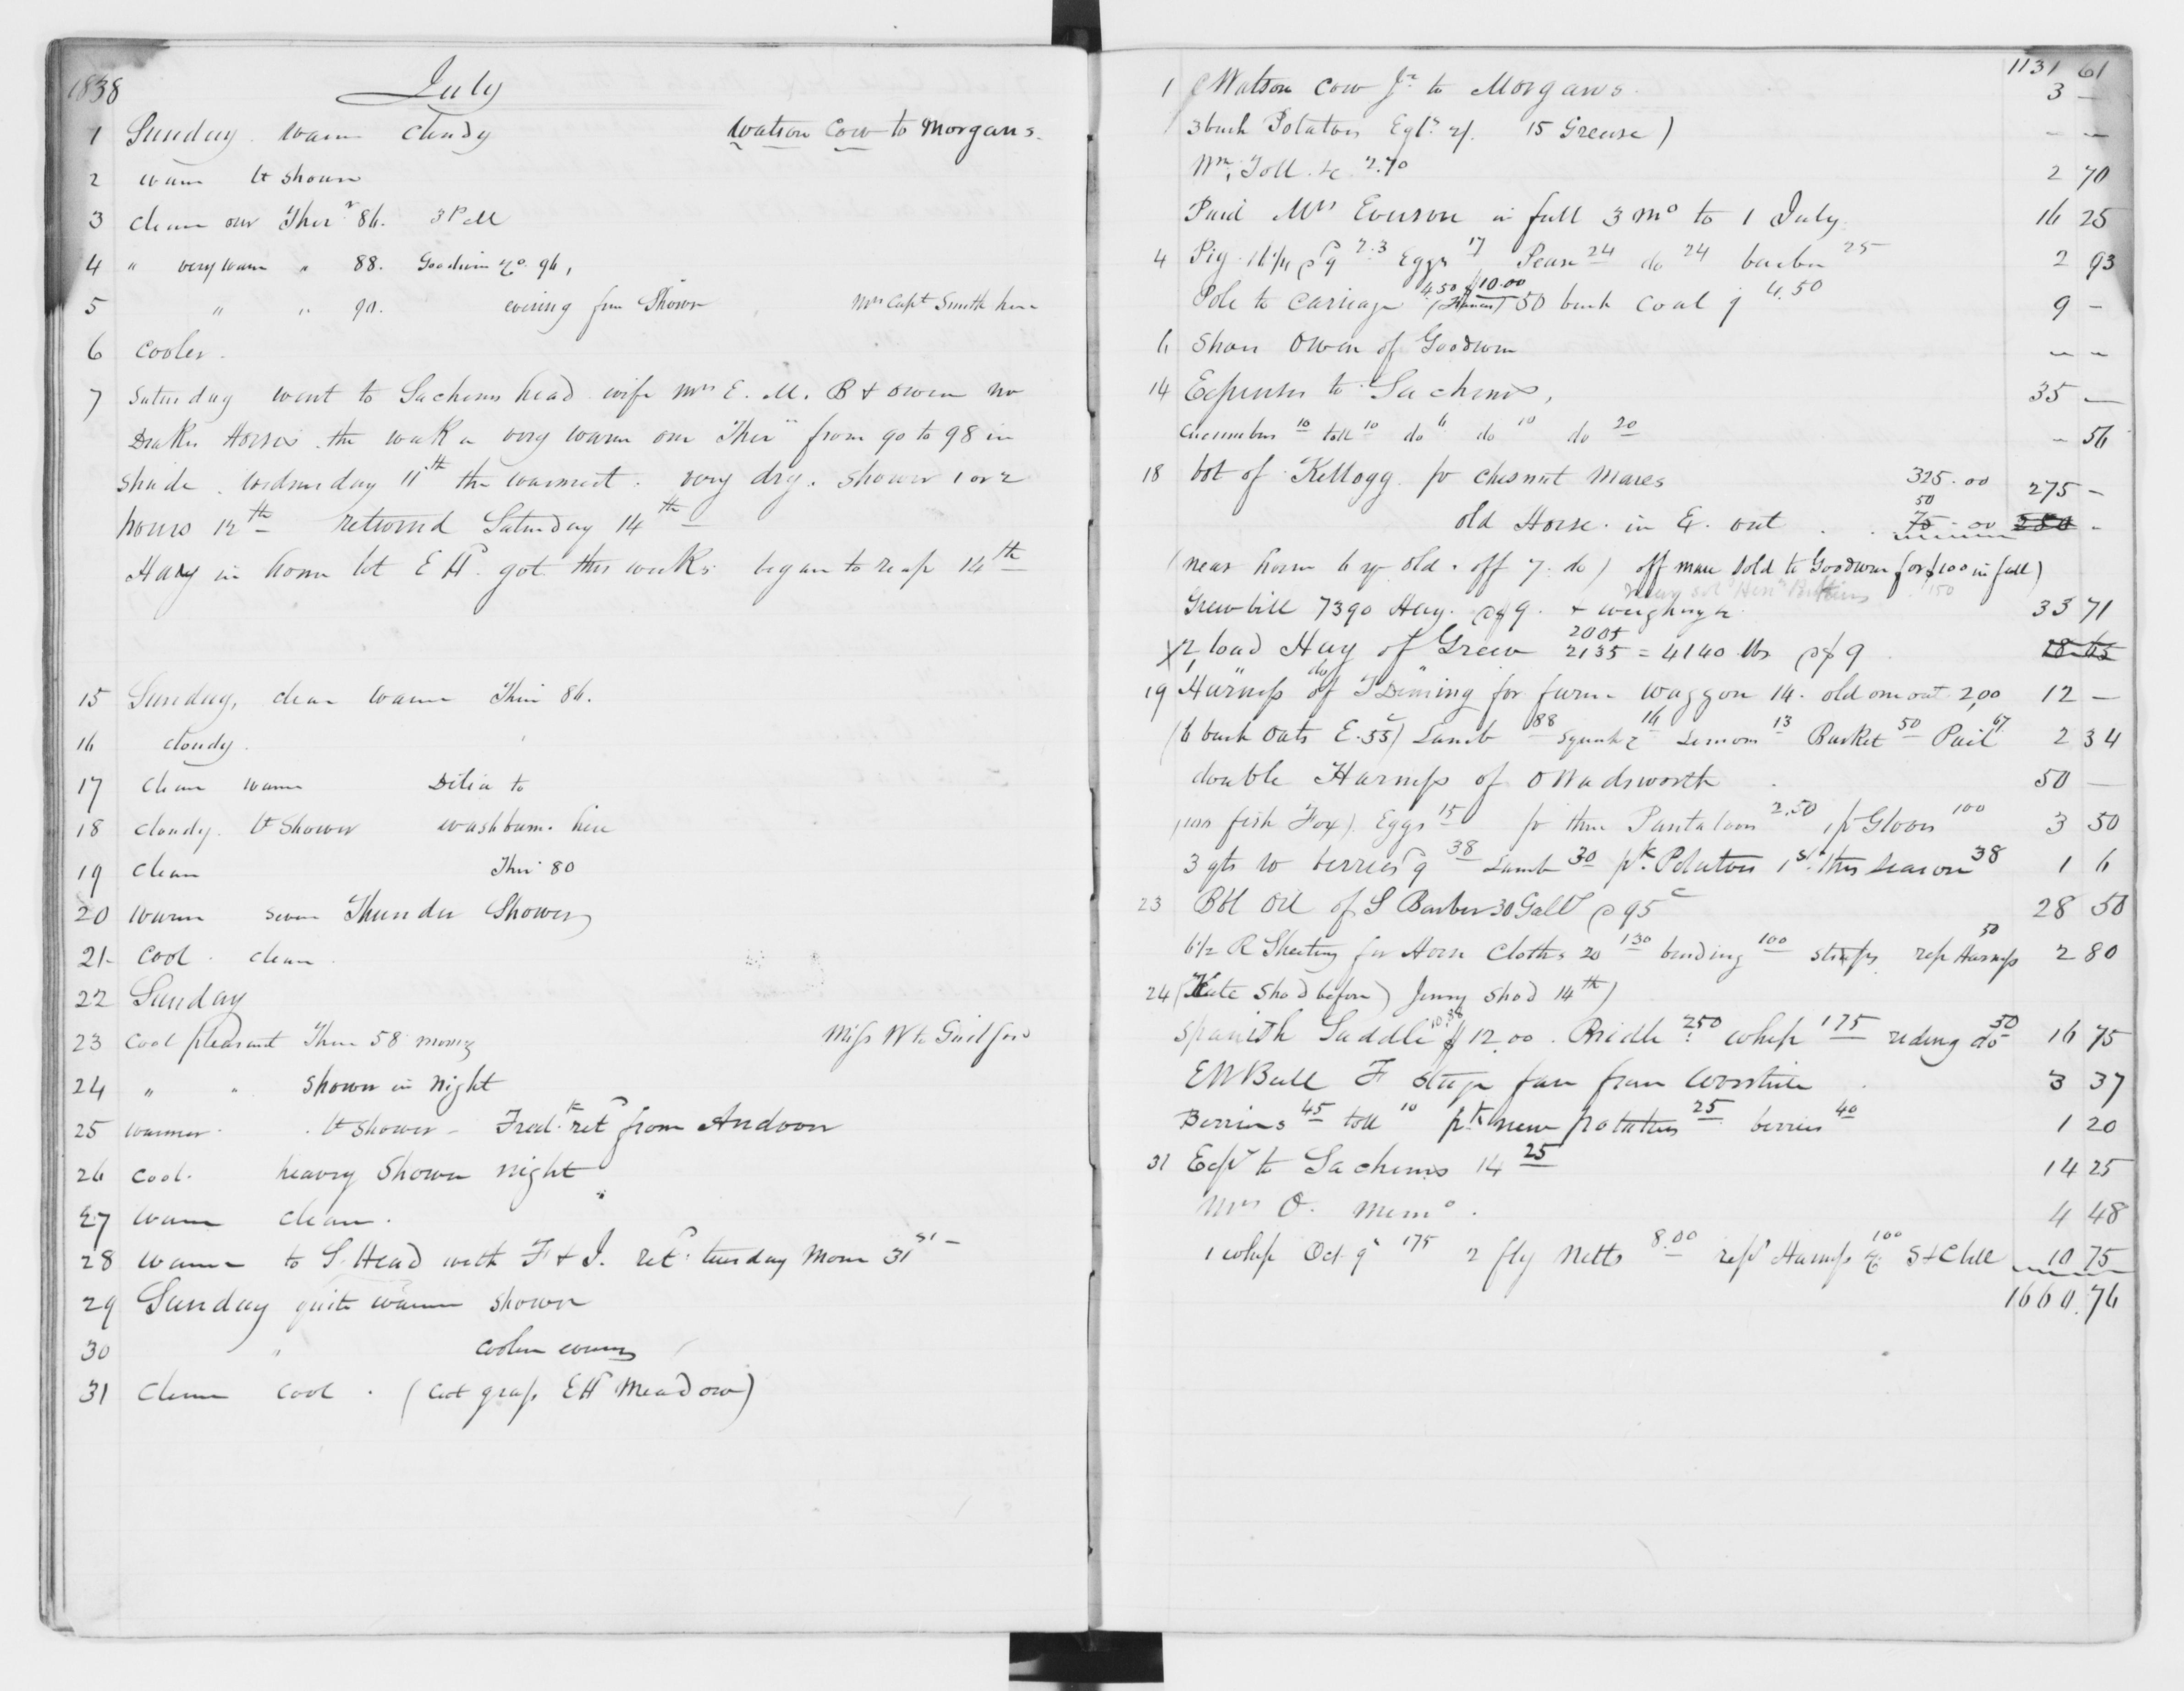 1838 July
1 Sunday. warm cloudy Watson Cow to Morgans.
2 warm lt shower
3 clear our Ther 86. 3 PM
4 " very warm " 88. Goodwin 96,
5 " " 90. evening fine Shower Mrs Capt Smith here
6 cooler.
7 Saturday went to Sachems head wife Mrs E. M. B & Owen
Drakes Horses the week very warm our Ther from 90 to 98 in
shade. Wednesday 11th the warmest. very dry. shower 1 or 2
hours 12th returned Saturday 14th
Hay in home lot E H got this week. began to reap 14th
15 Sunday, clear warm Ther 86.
16 cloudy.
17 clear warm Delia to
18 cloudy. lt Shower Washburn. here
19 clear Ther 80
20 warm severe Thunder Shower
21 cool. clear.
22 Sunday
23 cool pleasant Ther 58 morng Miss W to Guilford
24 " " shower in night
25 warmer. lt shower - Fredk retd from Andover
26 cool. heavy Shower night
27 warm clear.
28 warm to S. Head with F & J. retd tuesday morn 31st
29 Sunday quite warm shower
30 " cooler eveng
31 clear cool. (cut grass EH Meadow)
1131 61
1 (Watson Cow Jr to Morgans. 3 -
3 bush Potatoes 15 Grease) - -
Wm. Toll &c 2.70 2 70
Paid Mrs Everson in full 3 mo to 1 July 16 25
4 Pig 16 1/4 2.3 Eggs 17 Pease 24 do 24 25 2 93
4.50 $10.00
Pole to carriage 50 bush coal 4.50 9 -
6 Owen of Goodwin - -
14 Expenses to Sachems, 35 -
Cucumbers 10 toll 10 do 6 do 10 do 20 - 56
18 bot of Kellogg pr chesnut Mares 325.00 275 -
50
old Horse. in Ex. out 75.00 250 -
(near horse 6 yr old. off 7. do) off mare sold to Goodwin for $100 in full)
150
Grew bill 7390 Hay. 9. & weighing 33 71
2005
X 2 load Hay of Grew 2135 = 4140 lbs 9 18 65
19 1 Harness of T Deming for farm waggon 14. old one out 2.00 12 -
(6 bush Oats E. 55) Lamb 88 Squash 16 Lemons 13 Basket 50 Pail 67 2 34
double Harness of O Wadsworth 50 -
fish Fox) Eggs 15 pr thin Pantaloons 2.50 pr Gloves 100 3 50
3 qts w berries 9 38 Lamb 30 pk. Potatoes 1st this season 38 1 6
23 Bbl Oil of S Barber 30 Galls 95c 28 50
50
6 1/2 R Sheeting for Horse Cloths 20 130 binding 100 straps rep Harness 2 80
24 (Kate Shod before) Jenny Shod 14th)
Spanish Saddle 10.88 $12.00. Bridle 250 whip 175 riding do 50 16 75
E W Bull F stage fare from 3 37
Berries 45 toll 10 pk new potatoes 25 berries 40 1 20
31 Exps to Sachems 14 25 14 25
Mrs O. Memo. 4 48
1 whip Oct 9 175 2 fly Netts 8.00 repg Harness &c 100 10 75
1660.76